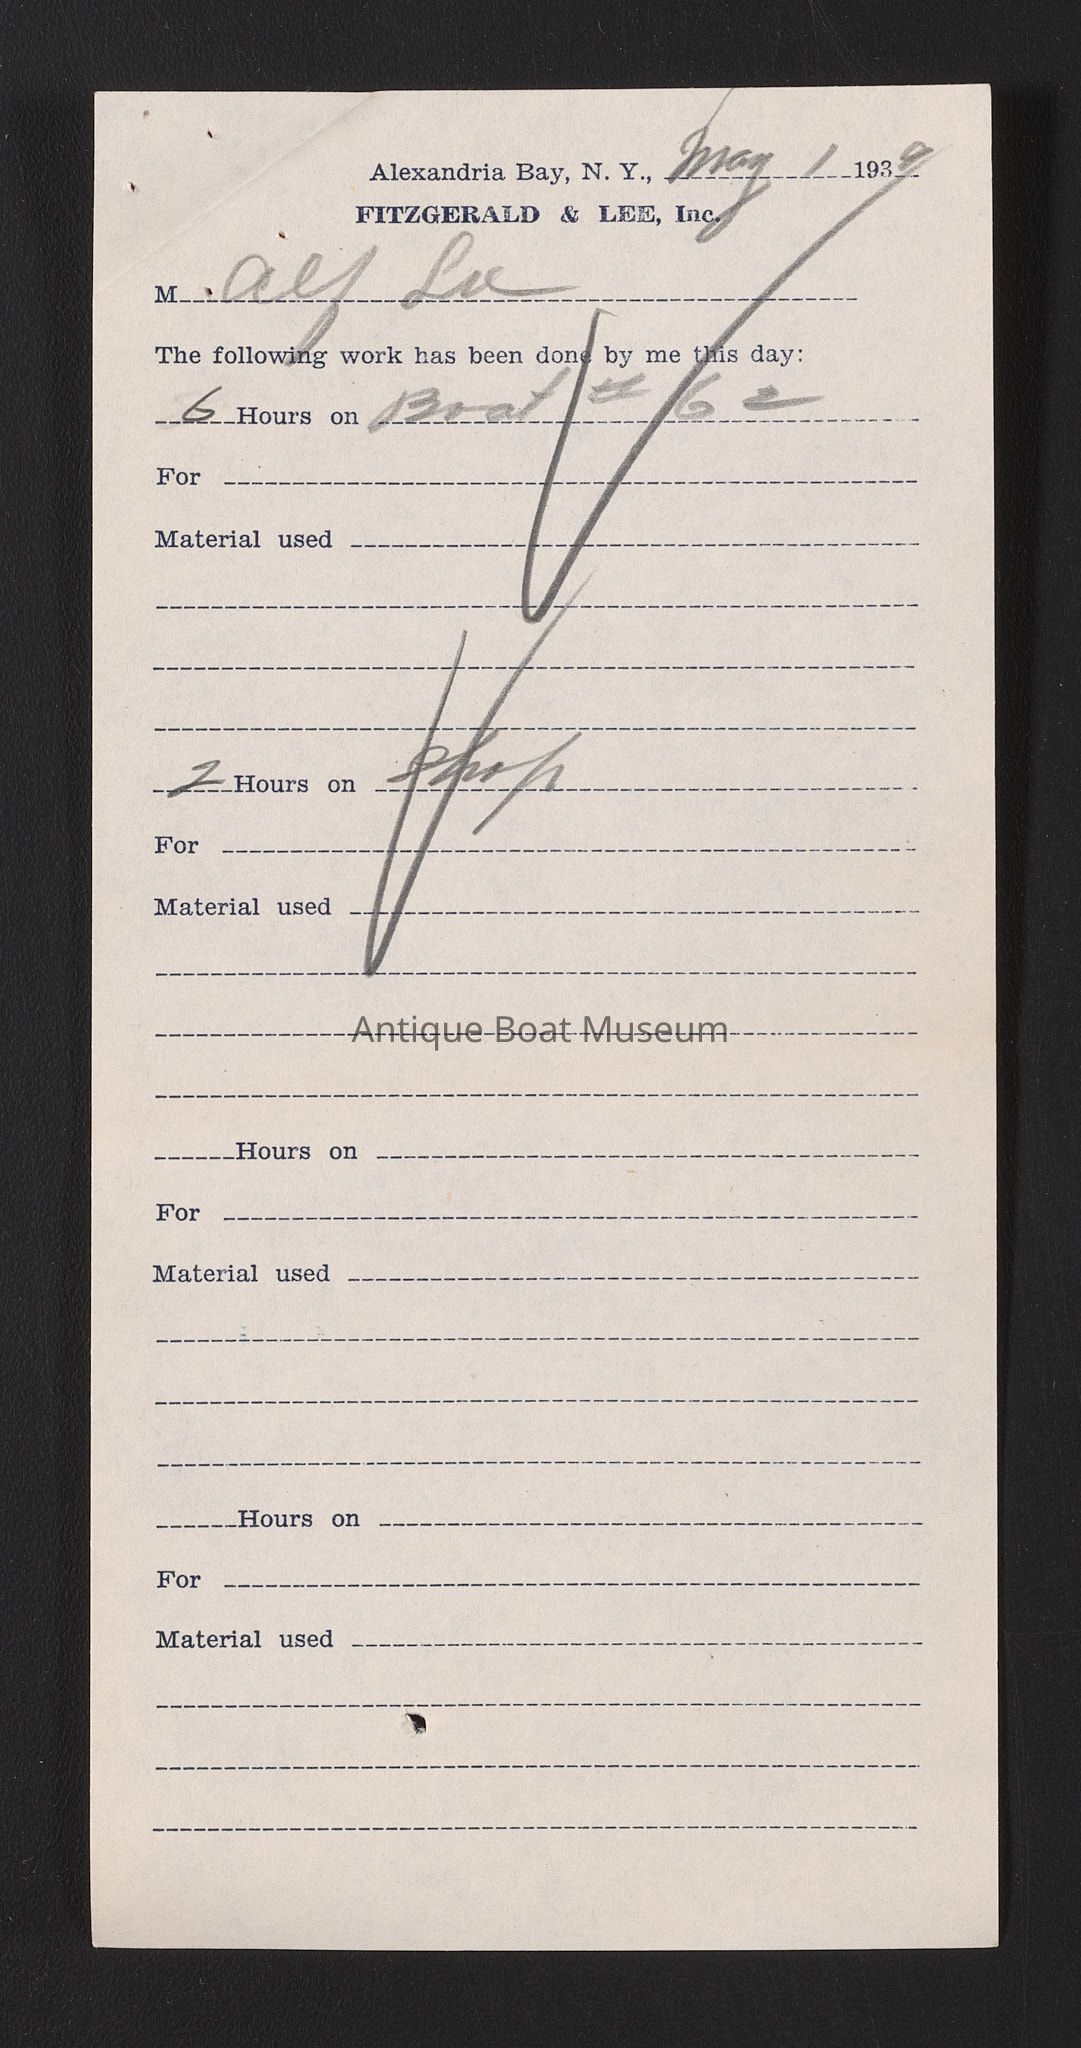 Alexandria Bay, N. Y., May 1 1939
FITZGERALD & LEE, Inc.
M Alf Lee
The following work has been done by me this day:
6 Hours on Boat # 62
For
Material used
2 Hours on Shop
For
Material used
Antique Boat Museum
Hours on
For
Material used
Hours on
For
Material used